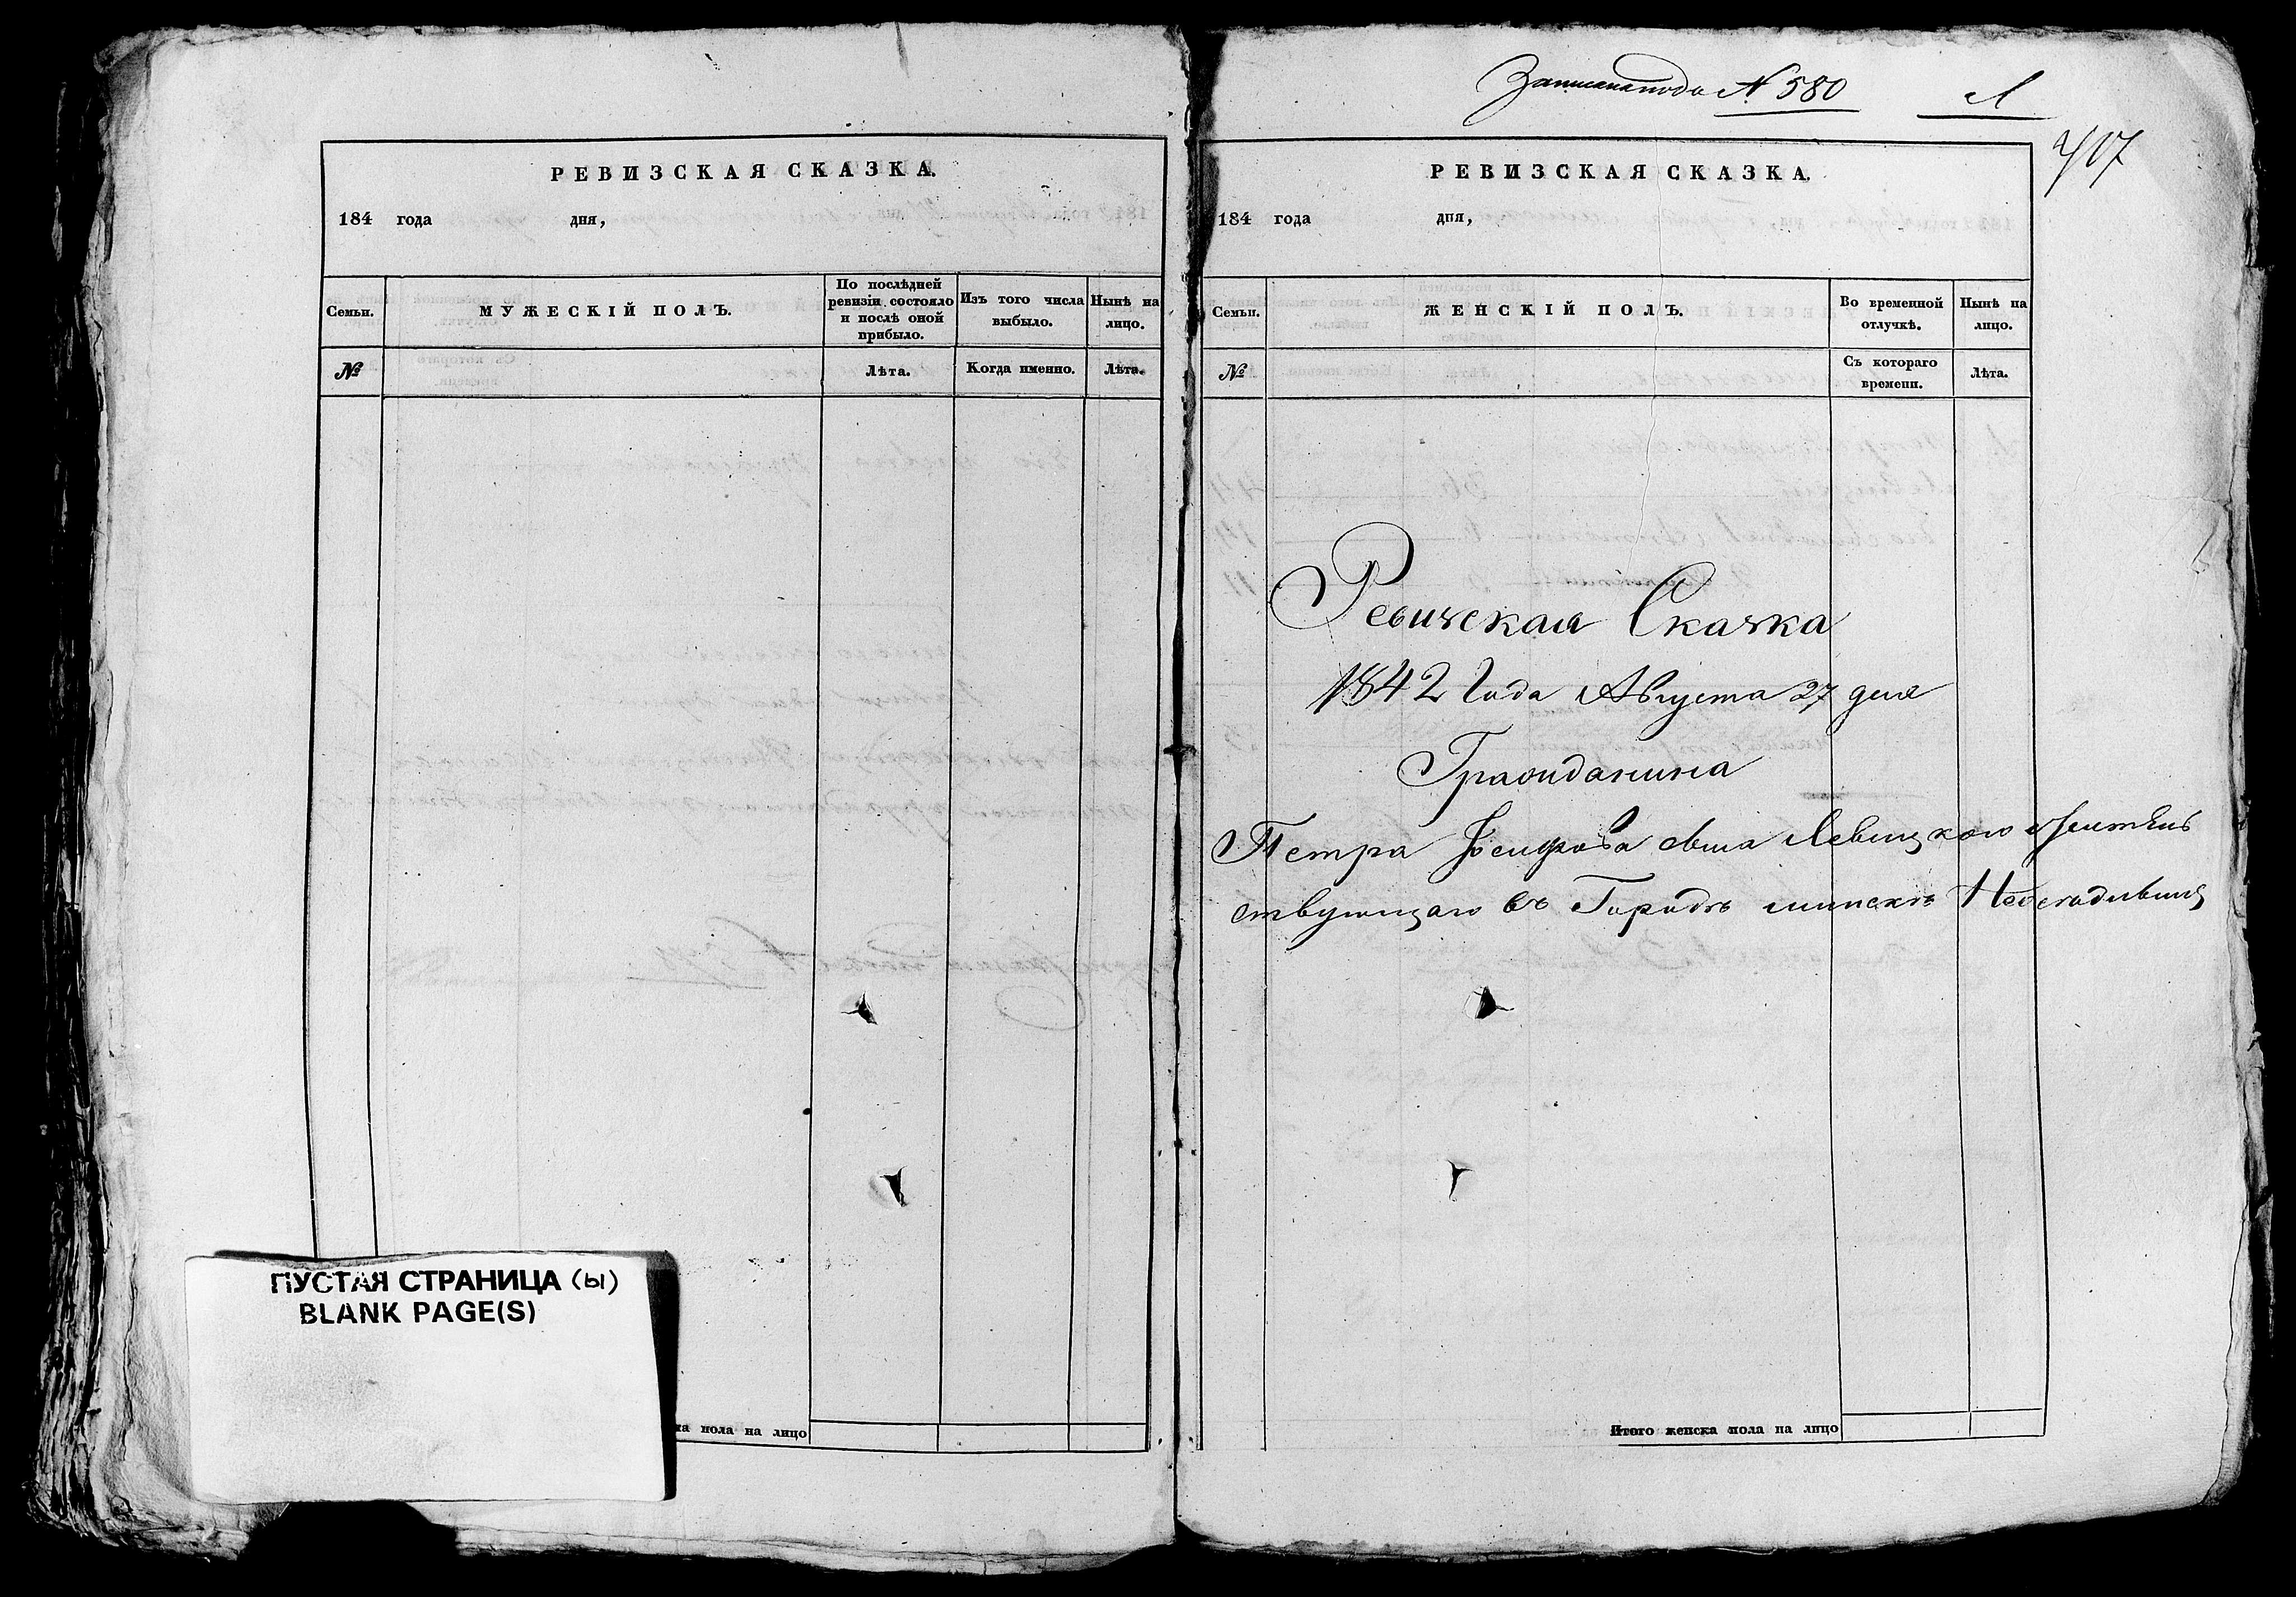 РЕВИЗСКАЯ СКАЗКА.
184 года дня,
Семьи. МУЖЕСКІЙ ПОЛЪ. По послѣдней ревизіи состояло и послѣ оной прибыло. Изъ того числа выбыло. Нынѣ на лицо.
№ Лѣта. Когда именно. Лѣта.
ПУСТАЯ СТРАНИЦА (ы)
BLANK PAGE(S)
на лицо
пола
Записана подъ N 580 Л
417
РЕВИЗСКАЯ СКАЗКА.
184 года дня,
Семьи. ЖЕНСКІЙ ПОЛЪ. Во временной отлучкѣ. Нынѣ на лицо.
№ Съ котораго времени. Лѣта.
Ревизская Сказка
1842 Года Августа 27 дня
Гражданина
Петра Іосифова сына Левицкого жительствующаго въ Городѣ минскѣ
Итого женска пола на лицо